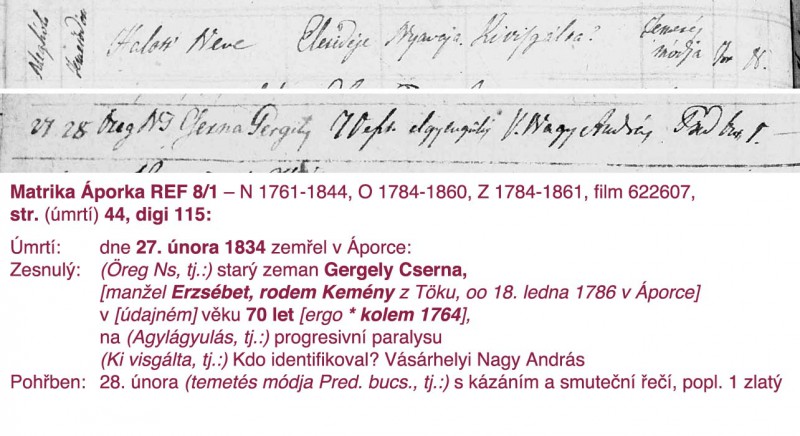 Meghólt Temetődött Halott Neve Elesideje Nyavaja. Kivisgálta? Temetés módja For X.
27 28 Öreg NS Cserna Gergely 70 eszt. elgyengülés V. Nagy András Préd buc. 1.—
Matrika Áporka REF 8/1 – N 1761-1844, O 1784-1860, Z 1784-1861, film 622607,
str. (úmrtí) 44, digi 115:
Úmrtí: dne 27. února 1834 zemřel v Áporce:
Zesnulý: (Öreg Ns, tj.:) starý zeman Gergely Cserna,
[manžel Erzsébet, rodem Kemény z Töku, oo 18. ledna 1786 v Áporce]
v [údajném] věku 70 let [ergo * kolem 1764],
na (Agylágyulás, tj.:) progresivní paralysu
(Ki visgálta, tj.:) Kdo identifikoval? Vásárhelyi Nagy András
Pohřben: 28. února (temetés módja Pred. bucs., tj.:) s kázáním a smuteční řečí, popl. 1 zlatý